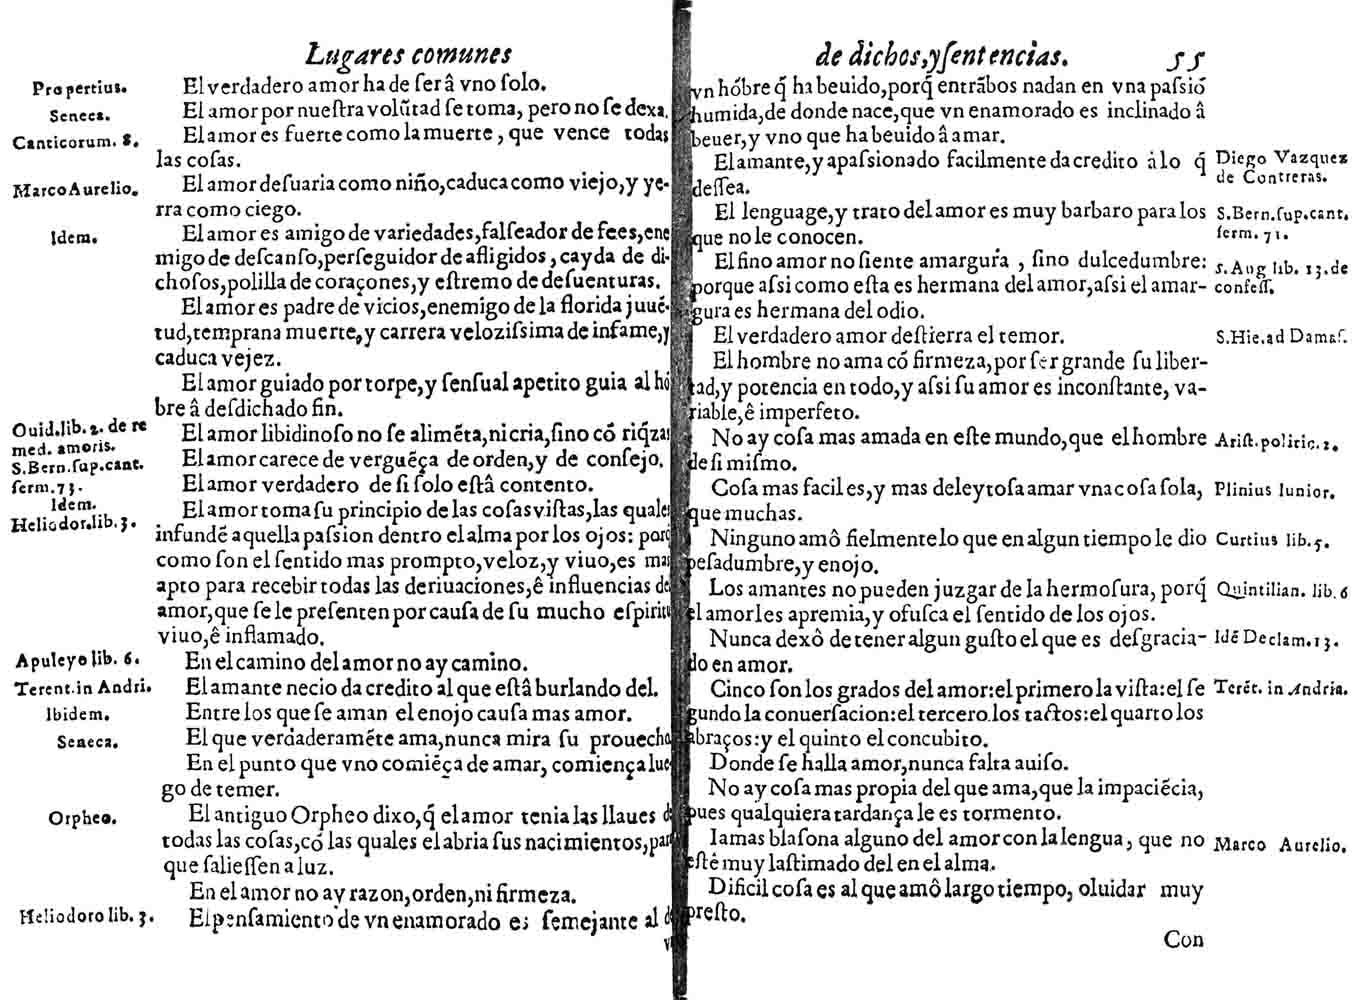 Lugares comunes
Propertius. El verdadero amor ha de ser â vno ſolo.
Seneca. El amor por nueſtra volũtad ſe toma, pero no ſe dexa.
Canticorum. 8. El amor es fuerte como la muerte, que vence todas
las coſas.
Marco Aurelio. El amor deſuaria como niño, caduca como viejo, y ye-
rra como ciego.
Idem. El amor es amigo de variedades, falſeador de fees, ene
migo de deſcanſo, perſeguidor de afligidos, cayda de di-
choſos, polilla de coraçones, y eſtremo de deſuenturas.
El amor es padre de vicios, enemigo de la florida juué-
tud, temprana muerte, y carrera velozíſsima de infame, y
caduca vejez.
El amor guiado por torpe, y ſenſual apetito guia al hó
bre â deſdichado fin.
Ouid. lib. 2. de re
med. amoris. El amor libidinoſo no ſe alimẽta, ni cria, ſino có riq̃zas
S. Bern. ſup. cant.
ſerm. 73. El amor carece de verguẽça de orden, y de conſejo.
Idem. El amor verdadero de ſi ſolo eſtâ contento.
Heliodor. lib. 3. El amor toma ſu principio de las coſas viſtas, las quales
infundẽ aquella paſsion dentro el alma por los ojos: porq̃
como ſon el ſentido mas prompto, veloz, y viuo, es mas
apto para recebir todas las deriuaciones, ê influencias de
amor, que ſe le preſenten por cauſa de ſu mucho eſpiritu
viuo, ê inflamado.
Apuleyo lib. 6. En el camino del amor no ay camino.
Terent. in Andri. El amante necio da credito al que eſtâ burlando del.
Ibidem. Entre los que ſe aman el enojo cauſa mas amor.
Seneca. El que verdaderamẽte ama, nunca mira ſu prouecho
En el punto que vno comiẽça de amar, comiença lue
go de temer.
Orpheo. El antiguo Orpheo dixo, q̃ el amor tenia las llaues de
todas las coſas, có las quales el abria ſus nacimientos, para
que ſalieſſen a luz.
En el amor no ay razon, orden, ni firmeza.
Heliodoro lib. 3. El penſamiento de vn enamorado es ſemejante al de
de dichos, y ſentencias. 55
vn hóbre q̃ ha beuido, porq̃ entrãbos nadan en vna paſsió
humida, de donde nace, que vn enamorado es inclinado â
beuer, y vno que ha beuido â amar.
El amante, y apaſsionado facilmente da credito à lo q̃ Diego Vazquez
deſſea. de Contreras.
El lenguage, y trato del amor es muy barbaro para los S. Bern. ſup. cant.
que no le conocen. ſerm. 71.
El fino amor no ſiente amargura, ſino dulcedumbre: S. Aug lib. 13. de
porque aſsi como eſta es hermana del amor, aſsi el amar- confeſſ.
gura es hermana del odio.
El verdadero amor deſtierra el temor. S. Hie. ad Damaſ.
El hombre no ama có firmeza, por ſer grande ſu liber-
tad, y potencia en todo, y aſsi ſu amor es inconſtante, va-
riable, ê imperfeto.
No ay coſa mas amada en eſte mundo, que el hombre Ariſt. politic. 2.
de ſi miſmo.
Coſa mas facil es, y mas deleytoſa amar vna coſa ſola, Plinius Iunior.
que muchas.
Ninguno amô fielmente lo que en algun tiempo le dio Curtius lib. 5.
peſadumbre, y enojo.
Los amantes no pueden juzgar de la hermoſura, porq̃ Quintilian. lib. 6
el amor les apremia, y ofuſca el ſentido de los ojos.
Nunca dexô de tener algun guſto el que es deſgracia- Idẽ Declam. 13.
do en amor.
Cinco ſon los grados del amor: el primero la viſta: el ſe Terẽt. in Andria.
gundo la conuerſacion: el tercero los tactos: el quarto los
abraços: y el quinto el concubito.
Donde ſe halla amor, nunca falta auiſo.
No ay coſa mas propia del que ama, que la impaciẽcia,
pues qualquiera tardança le es tormento.
Iamas blaſona alguno del amor con la lengua, que no Marco Aurelio.
eſtê muy laſtimado del en el alma.
Dificil coſa es al que amô largo tiempo, oluidar muy
preſto.
Con